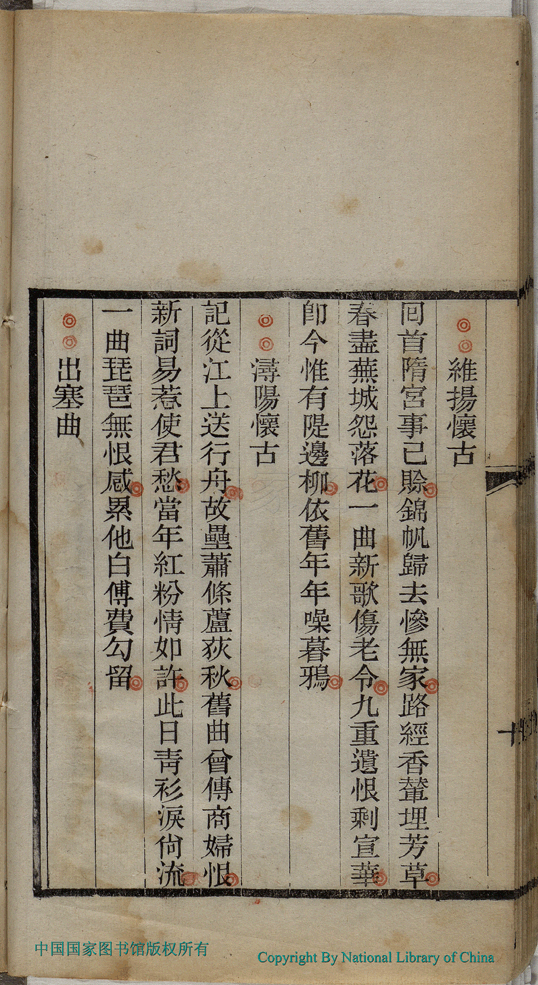 維揚懷古
囘首隋宮事已賒錦帆歸去慘無家路經香輦埋芳草
春盡蕪城怨落花一曲新歌傷老令九重遺恨剩宣華
卽今惟有隄邊柳依舊年年噪暮鴉
潯陽懷古
記從江上送行舟故壘蕭條蘆荻秋舊曲曾傳商婦恨
新詞易惹使君愁當年紅粉情如許此日靑衫淚尙流
一曲琵琶無恨感累他白傅費勾留
出塞曲
中国国家图书馆版权所有
Copyright By National Library of China